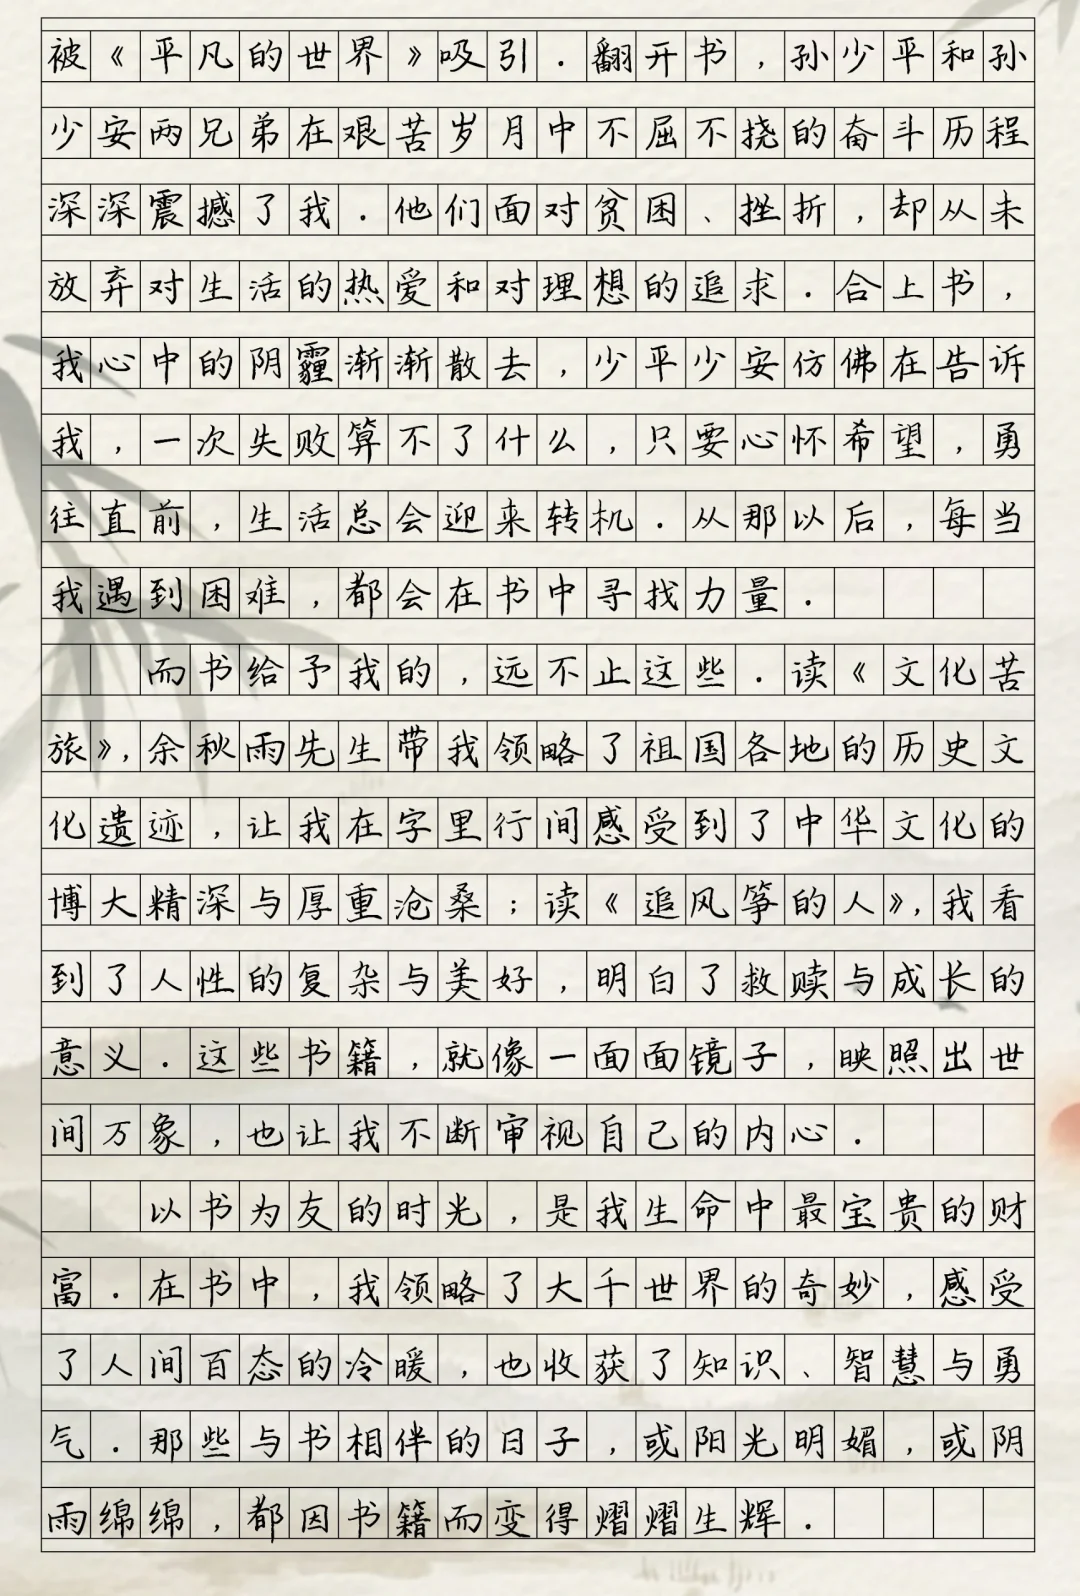 被《平凡的世界》吸引．翻开书，孙少平和孙
少安两兄弟在艰苦岁月中不屈不挠的奋斗历程
深深震撼了我．他们面对贫困、挫折，却从未
放弃对生活的热爱和对理想的追求．合上书，
我心中的阴霾渐渐散去，少平少安仿佛在告诉
我，一次失败算不了什么，只要心怀希望，勇
往直前，生活总会迎来转机．从那以后，每当
我遇到困难，都会在书中寻找力量．
而书给予我的，远不止这些．读《文化苦
旅》，余秋雨先生带我领略了祖国各地的历史文
化遗迹，让我在字里行间感受到了中华文化的
博大精深与厚重沧桑；读《追风筝的人》，我看
到了人性的复杂与美好，明白了救赎与成长的
意义．这些书籍，就像一面面镜子，映照出世
间万象，也让我不断审视自己的内心．
以书为友的时光，是我生命中最宝贵的财
富．在书中，我领略了大千世界的奇妙，感受
了人间百态的冷暖，也收获了知识、智慧与勇
气．那些与书相伴的日子，或阳光明媚，或阴
雨绵绵，都因书籍而变得熠熠生辉．